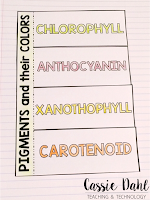 PIGMENTS and their COLORS
CHLOROPHYLL
ANTHOCYANIN
XANOTHOPHYLL
CAROTENOID
Cassie Dahl
TEACHING & TECHNOLOGY